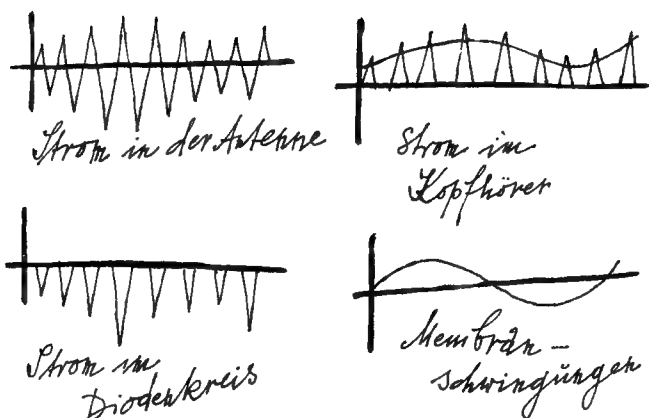 Strom in der Antenne
Strom im
Kopfhörer
Strom im
Diodenkreis
Membran-
schwingungen